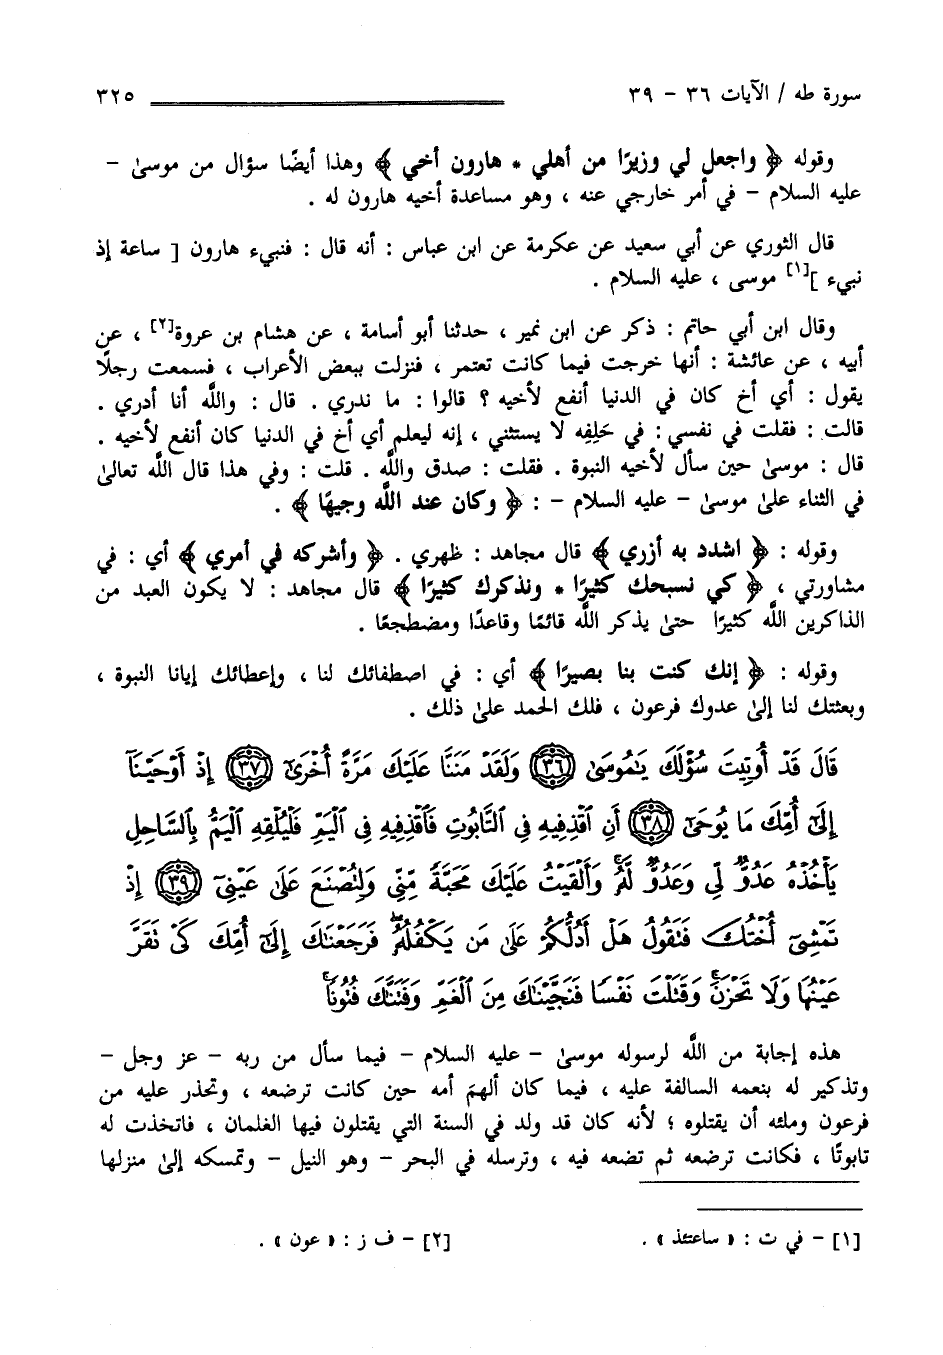 سورة طه / الآيات ٣٦ - ٣٩ ٣٢٥
وقوله ﴿ واجعل لي وزيرًا من أهلي * هارون أخي ﴾ وهذا أيضًا سؤال من موسىٰ -
عليه السلام - في أمر خارجي عنه ، وهو مساعدة أخيه هارون له .
قال الثوري عن أبي سعيد عن عكرمة عن ابن عباس : أنه قال : فنبيء هارون [ ساعة إذ
نبيء ][١] موسى ، عليه السلام .
وقال ابن أبي حاتم : ذكر عن ابن نمير ، حدثنا أبو أسامة ، عن هشام بن عروة[٢] ، عن
أبيه ، عن عائشة : أنها خرجت فيما كانت تعتمر ، فنزلت ببعض الأعراب ، فسمعت رجلًا
يقول : أي أخ كان في الدنيا أنفع لأخيه ؟ قالوا : ما ندري . قال : واللَّه أنا أدري .
قالت : فقلت في نفسي : في حَلِفِه لا يستثني ، إنه ليعلم أي أخ في الدنيا كان أنفع لأخيه .
قال : موسىٰ حين سأل لأخيه النبوة . فقلت : صدق واللَّه . قلت : وفي هذا قال اللَّه تعالىٰ
في الثناء علىٰ موسىٰ - عليه السلام - : ﴿ وكان عند اللَّه وجيهًا ﴾ .
وقوله : ﴿ اشدد به أزري ﴾ قال مجاهد : ظهري . ﴿ وأشركه في أمري ﴾ أي : في
مشاورتي ، ﴿ كي نسبحك كثيرًا * ونذكرك كثيرًا ﴾ قال مجاهد : لا يكون العبد من
الذاكرين اللَّه كثيرًا حتىٰ يذكر اللَّه قائمًا وقاعدًا ومضطجعًا .
وقوله : ﴿ إنك كنت بنا بصيرًا ﴾ أي : في اصطفائك لنا ، وإعطائك إيانا النبوة ،
وبعثتك لنا إلىٰ عدوك فرعون ، فلك الحمد علىٰ ذلك .
قَالَ قَدْ أُوتِيتَ سُؤْلَكَ يَٰمُوسَىٰ ٣٦ وَلَقَدْ مَنَنَّا عَلَيْكَ مَرَّةً أُخْرَىٰٓ ٣٧ إِذْ أَوْحَيْنَآ
إِلَىٰٓ أُمِّكَ مَا يُوحَىٰٓ ٣٨ أَنِ ٱقْذِفِيهِ فِى ٱلتَّابُوتِ فَٱقْذِفِيهِ فِى ٱلْيَمِّ فَلْيُلْقِهِ ٱلْيَمُّ بِٱلسَّاحِلِ
يَأْخُذْهُ عَدُوٌّ لِّى وَعَدُوٌّ لَّهُۥ ۚ وَأَلْقَيْتُ عَلَيْكَ مَحَبَّةً مِّنِّى وَلِتُصْنَعَ عَلَىٰ عَيْنِىٓ ٣٩ إِذْ
تَمْشِىٓ أُخْتُكَ فَتَقُولُ هَلْ أَدُلُّكُمْ عَلَىٰ مَن يَكْفُلُهُۥ ۖ فَرَجَعْنَٰكَ إِلَىٰٓ أُمِّكَ كَىْ تَقَرَّ
عَيْنُهَا وَلَا تَحْزَنَ ۚ وَقَتَلْتَ نَفْسًا فَنَجَّيْنَٰكَ مِنَ ٱلْغَمِّ وَفَتَنَّٰكَ فُتُونًا ۚ
هذه إجابة من اللَّه لرسوله موسىٰ - عليه السلام - فيما سأل من ربه - عز وجل -
وتذكير له بنعمه السالفة عليه ، فيما كان ألهمَ أمه حين كانت ترضعه ، وتحذر عليه من
فرعون وملئه أن يقتلوه ؛ لأنه كان قد ولد في السنة التي يقتلون فيها الغلمان ، فاتخذت له
تابوتًا ، فكانت ترضعه ثم تضعه فيه ، وترسله في البحر - وهو النيل - وتمسكه إلىٰ منزلها
[١] - في ت : « ساعتئذ » . [٢] - ف ز : « عون » .